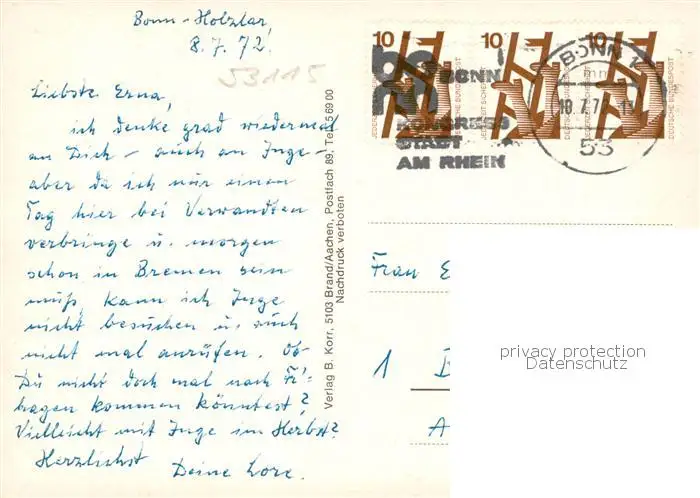 Bonn-Holzlar,
8.7.72.
53115
Liebste Erna,
ich denke grad wiedermal
an Dich – auch an Inge –
aber da ich nur einen
Tag hier bei Verwandten
verbringe u. morgen
schon in Bremen sein
muß, kann ich Inge
nicht besuchen u. auch
nicht mal anrufen. Ob
Du nicht doch mal nach
hagen kommen könntest?
Vielleicht mit Inge im Herbst?
Herzlichst Deine Lore.
Verlag B. Korr, 5103 Brand/Aachen, Postfach 89, Tel. 5 69 00
Nachdruck verboten
10 10 10
JEDERZEIT SICHERHEIT
DEUTSCHE BUNDESPOST
BONN
KONGRESS
STADT
AM RHEIN
BONN 1
53
Frau E
1
privacy protection
Datenschutz